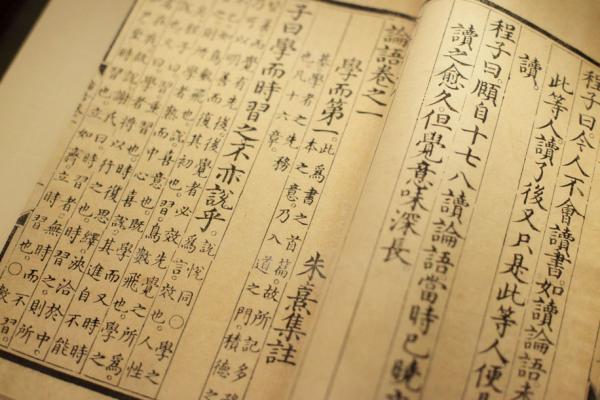 程子曰。今人不會讀書。如讀論語未
此等人。讀了後又只是此等人。便是
讀。
程子曰。頤自十七八讀論語。當時已曉
讀之愈久。但覺意味深長
論語卷之一
朱熹集註
學而第一
此為書之首篇。故所記多務
本之意。乃入道之門。積德之
基。學者之先務也。凡十六章。
子曰。學而時習之。不亦說乎。
說悅同○學之
為言效也。人性
皆善。而覺有先後。後覺者必效先覺之所為。
乃可以明善而復其初也。習。鳥數飛也。學之
不已。如鳥數飛也。說。喜意也。既學而又時時
習之。則所學者熟。而中心喜說。其進自不能
已矣。程子曰。習。重習也。時復思繹。浹洽於中。
則說也。又曰。學者。將以行之也。時習之。則所
學者在我。故說。謝氏曰。時習者。無時而不習。
立如齊。立時習也。○